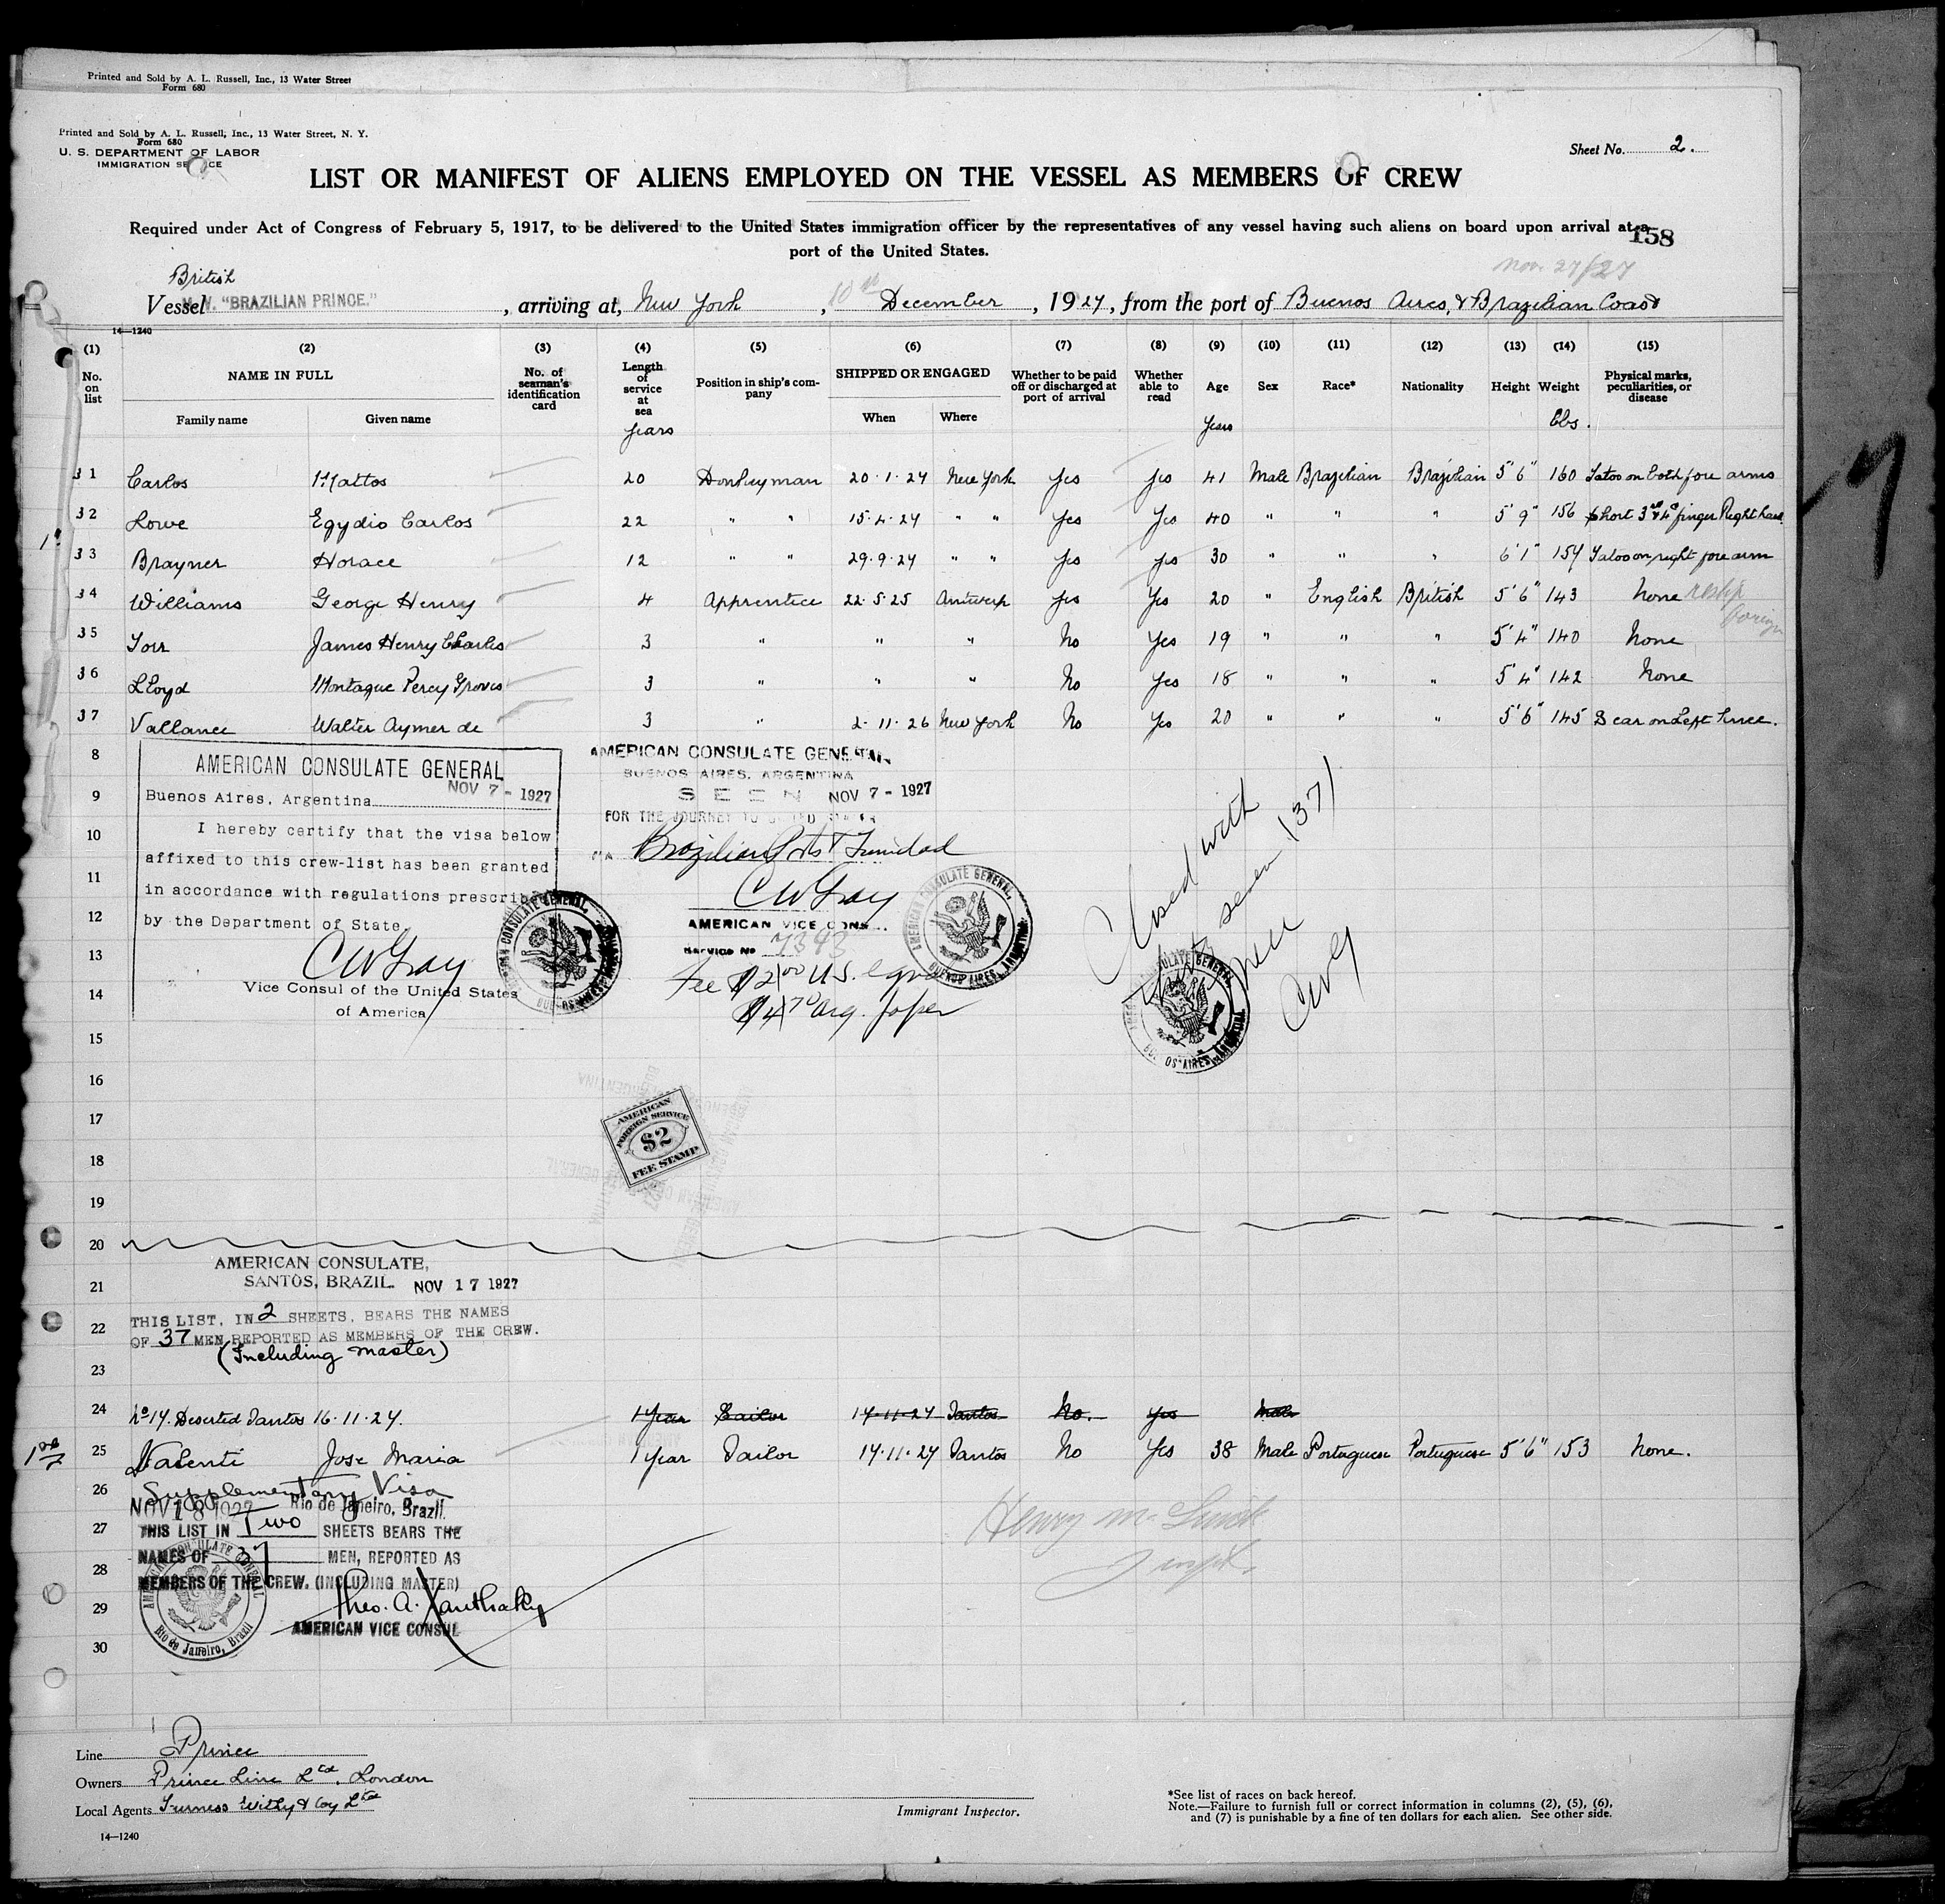 Printed and Sold by A. L. Russell, Inc., 13 Water Street
Form 680
Printed and Sold by A. L. Russell, Inc., 13 Water Street, N. Y.
Form 680
U. S. DEPARTMENT OF LABOR
IMMIGRATION SERVICE
Sheet No. 2.
LIST OR MANIFEST OF ALIENS EMPLOYED ON THE VESSEL AS MEMBERS OF CREW
Required under Act of Congress of February 5, 1917, to be delivered to the United States immigration officer by the representatives of any vessel having such aliens on board upon arrival at a
port of the United States.
158
Nov. 27/27
British
Vessel M.V. "BRAZILIAN PRINCE." , arriving at, New York , 10th December , 1927, from the port of Buenos Aires, & Brazilian Coast
14—1240
(1) (2) (3) (4) (5) (6) (7) (8) (9) (10) (11) (12) (13) (14) (15)
No. on list NAME IN FULL No. of seaman's identification card Length of service at sea Position in ship's company SHIPPED OR ENGAGED Whether to be paid off or discharged at port of arrival Whether able to read Age Sex Race* Nationality Height Weight Physical marks, peculiarities, or disease
Family name Given name years When Where Years Lbs.
31 Carlos Mattos 20 Donkeyman 20.1.27 New York Yes Yes 41 Male Brazilian Brazilian 5'6" 160 Tatoo on both fore arms
32 Lowe Egydio Carlos 22 " " 15.4.27 " " Yes Yes 40 " " " 5'9" 156 Short 3rd & 4th finger Right hand
33 Brayner Horace 12 " " 29.9.27 " " Yes Yes 30 " " " 6'1" 157 Tatoo on right fore arm
34 Williams George Henry 4 Apprentice 22.5.25 Antwerp Yes Yes 20 " English British 5'6" 143 None reship foreign
35 Torr James Henry Charles 3 " " " No Yes 19 " " " 5'4" 140 None
36 Lloyd Montague Percy Groves 3 " " " No Yes 18 " " " 5'4" 142 None
37 Vallance Walter Aymer de 3 " 2.11.26 New York No Yes 20 " " " 5'6" 145 Scar on Left Knee.
8
9
10
11
12
13
14
15
16
17
18
19
20
AMERICAN CONSULATE GENERAL
Buenos Aires, Argentina NOV 7 - 1927
I hereby certify that the visa below
affixed to this crew-list has been granted
in accordance with regulations prescribed
by the Department of State.
C W Gray
Vice Consul of the United States
of America
AMERICAN CONSULATE GENERAL
BUENOS AIRES, ARGENTINA
SEEN NOV 7 - 1927
FOR THE JOURNEY TO UNITED STATES
VIA Brazilian Ports & Trinidad
C W Gray
AMERICAN VICE CONSUL
SERVICE No 7393
Fee $2.00 U.S. equal
$4.70 Arg. paper
AMERICAN CONSULATE GENERAL, BUENOS AIRES, ARGENTINA
Closed with
thirty seven (37)
men
CWG
AMERICAN
FOREIGN SERVICE
$2
FEE STAMP
21
22
23
AMERICAN CONSULATE,
SANTOS, BRAZIL. NOV 17 1927
THIS LIST, IN 2 SHEETS, BEARS THE NAMES
OF 37 MEN REPORTED AS MEMBERS OF THE CREW.
(Including master)
24 No 17. Deserted Santos 16.11.27. 1 Year Sailor 17.11.27 Santos No. Yes Male
25 Valenti Jose Maria 1 Year Sailor 17.11.27 Santos No Yes 38 Male Portuguese Portuguese 5'6" 153 None.
26
27
28
29
30
Supplementary Visa
NOV 18 1927 Rio de Janeiro, Brazil.
THIS LIST IN Two SHEETS BEARS THE
NAMES OF 37 MEN, REPORTED AS
MEMBERS OF THE CREW. (INCLUDING MASTER)
Theo. A. Xanthaky
AMERICAN VICE CONSUL
AMERICAN CONSULATE GENERAL Rio de Janeiro, Brazil
Line Prince
Owners Prince Line Ltd. London
Local Agents Furness Withy & Coy Ltd
14—1240
Immigrant Inspector.
*See list of races on back hereof.
Note.—Failure to furnish full or correct information in columns (2), (5), (6),
and (7) is punishable by a fine of ten dollars for each alien. See other side.